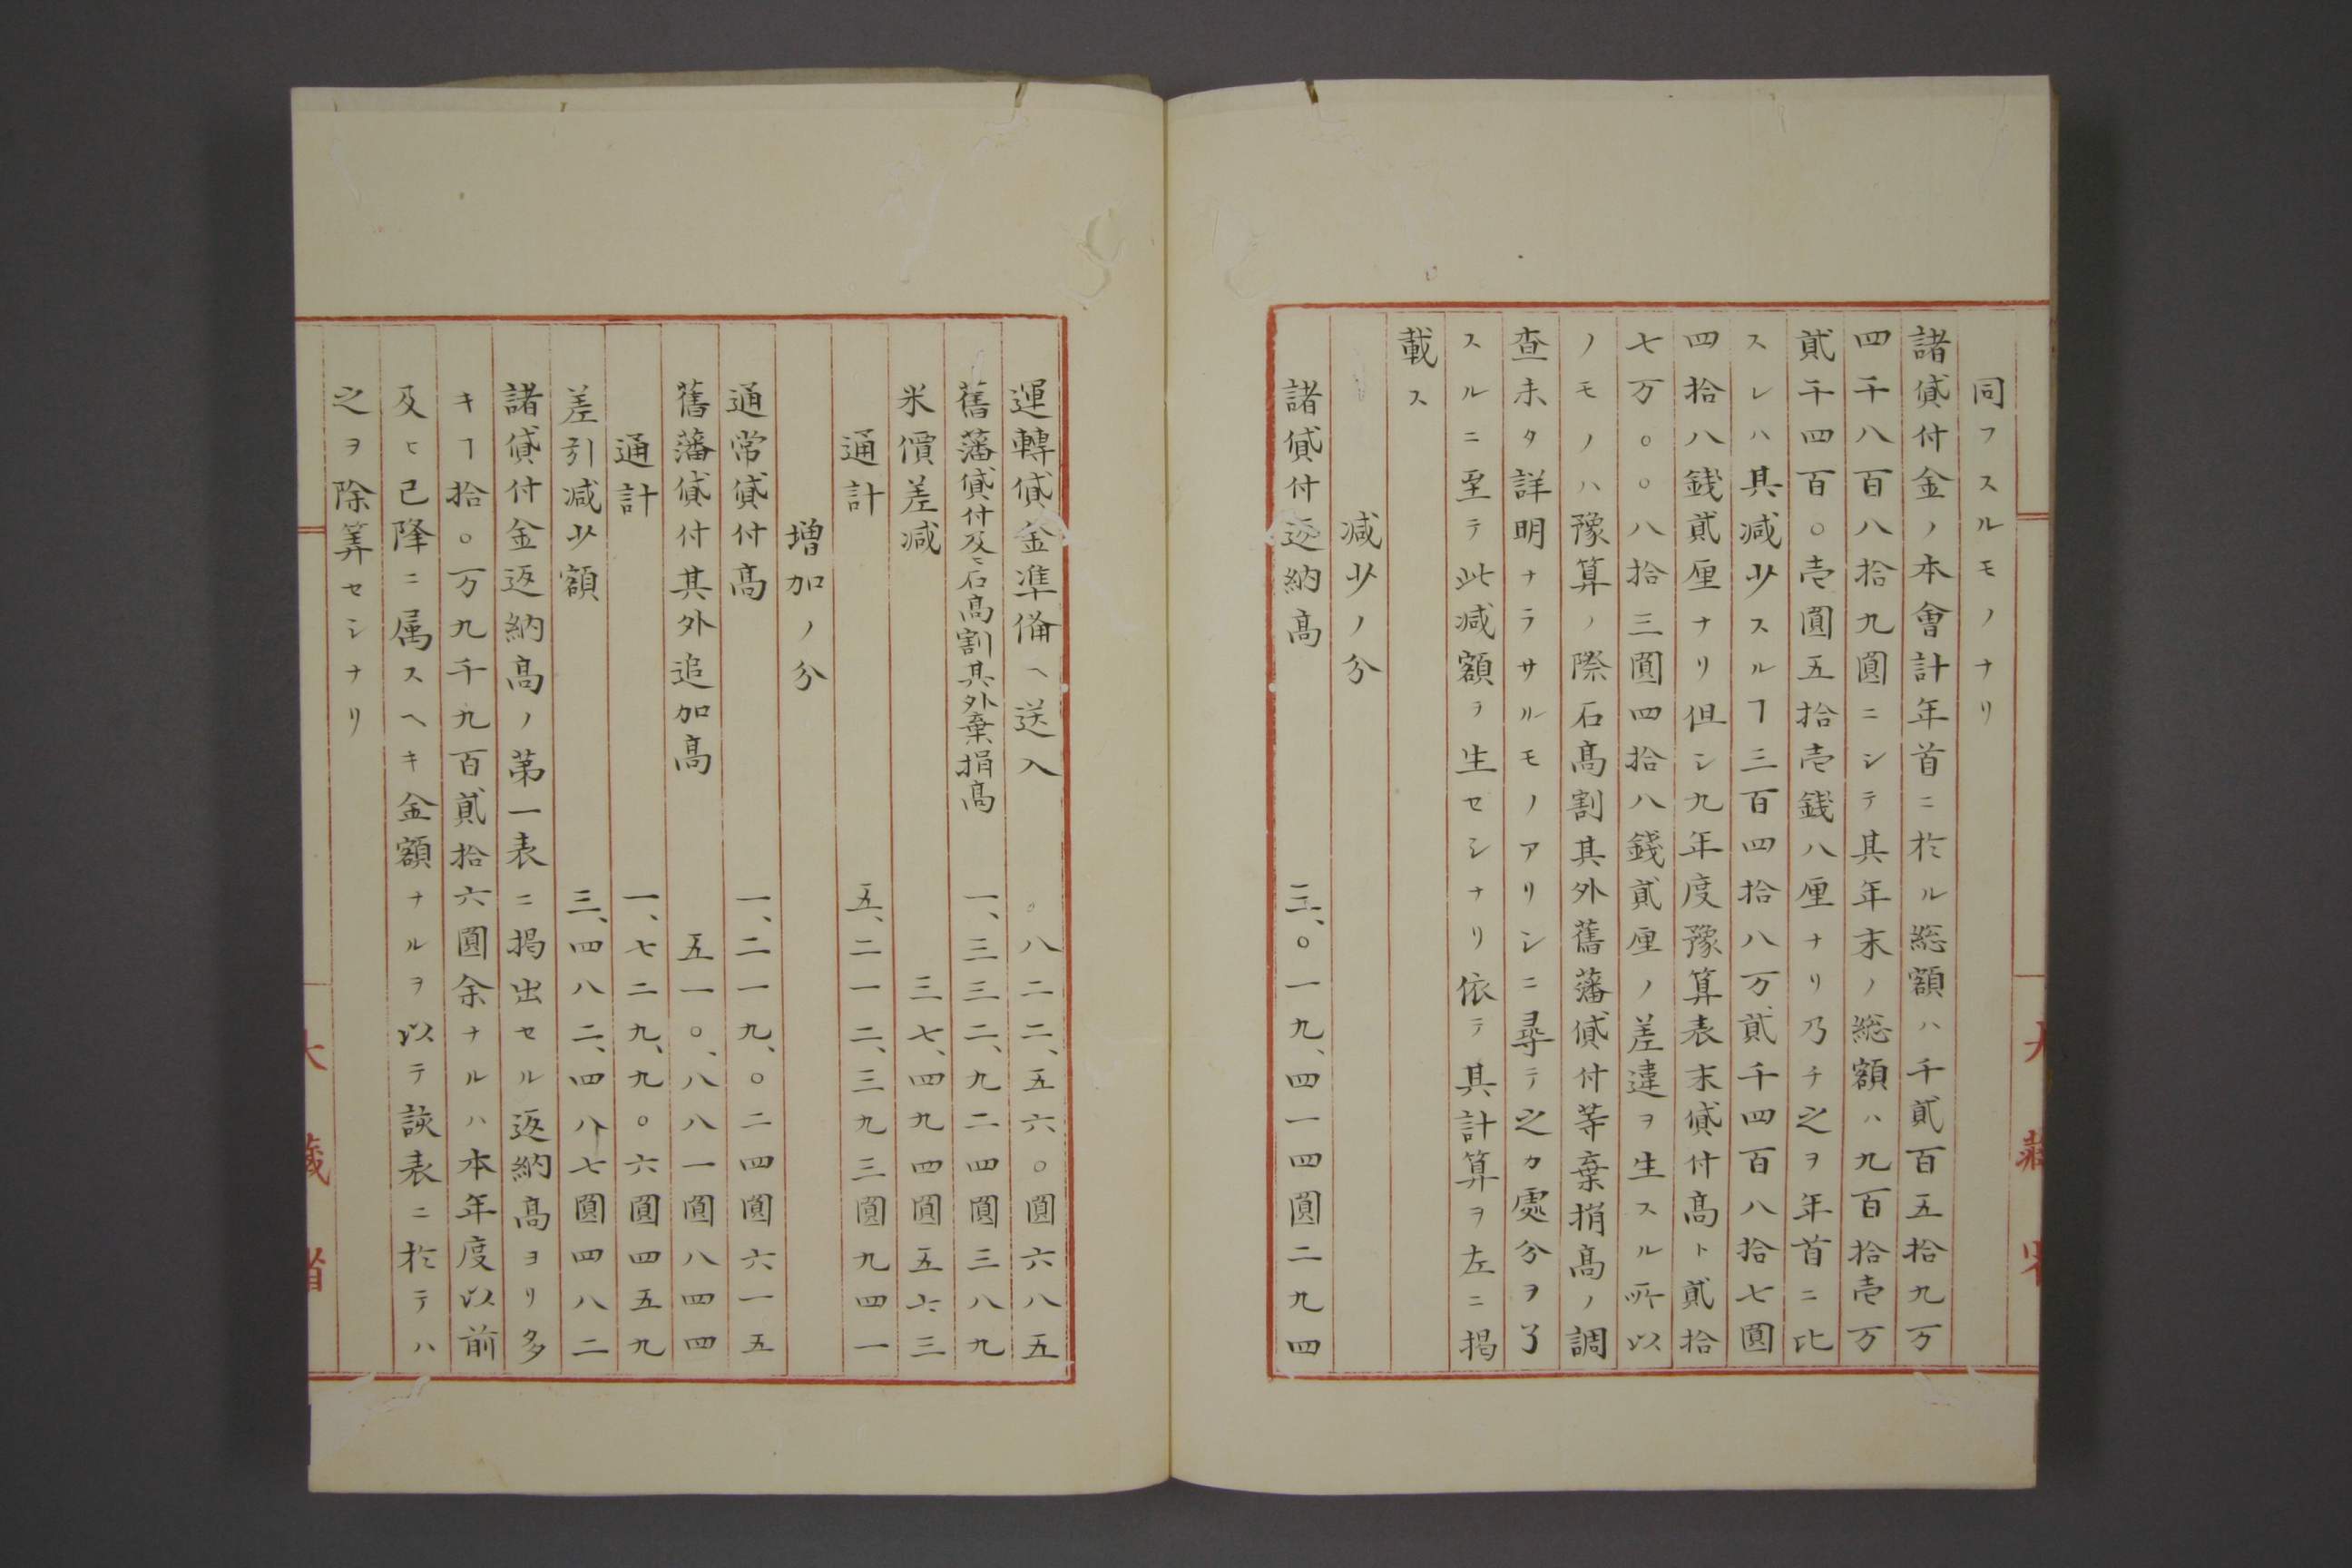 同フスルモノナリ
諸貸付金ノ本會計年首ニ於ル総額ハ千貳百五拾九万
四千八百八拾九圓ニシテ其年末ノ総額ハ九百拾壱万
貳千四百〇壱圓五拾壱銭八厘ナリ乃チ之ヲ年首ニ比
スレハ其減少スルヿ三百四拾八万貳千四百八拾七圓
四拾八銭貳厘ナリ但シ九年度豫算表末貸付高ト貳拾
七万〇〇八拾三圓四拾八錢貳厘ノ差違ヲ生スル所以
ノモノハ豫算ノ際石高割其外舊藩貸付等棄捐高ノ調
査未タ詳明ナラサルモノアリシニ尋テ之カ處分ヲ了
スルニ至テ此減額ヲ生セシナリ依テ其計算ヲ左ニ掲
載ス
減少ノ分
諸貸付返納高 三、〇一九、四一四圓二九四
大藏省
運轉貸金準備ヘ送入 〇八二二、五六〇圓六八五
舊藩貸付及ヒ石高割其外棄捐高 一、三三二、九二四圓三八九
米價差減 三七、四九四圓五六三
通計 五、二一二、三九三圓九四一
増加ノ分
通常貸付高 一、二一九、〇二四圓六一五
舊藩貸付其外追加高 五一〇、八八一圓八四四
通計 一、七二九、九〇六圓四五九
差引減少額 三、四八二、四八七圓四八二
諸貸付金返納高ノ第一表ニ掲出セル返納高ヨリ多
キヿ拾〇万九千九百貳拾六圓余ナルハ本年度以前
及ヒ己降ニ属スヘキ金額ナルヲ以テ該表ニ於テハ
之ヲ除筭セシナリ
大藏省